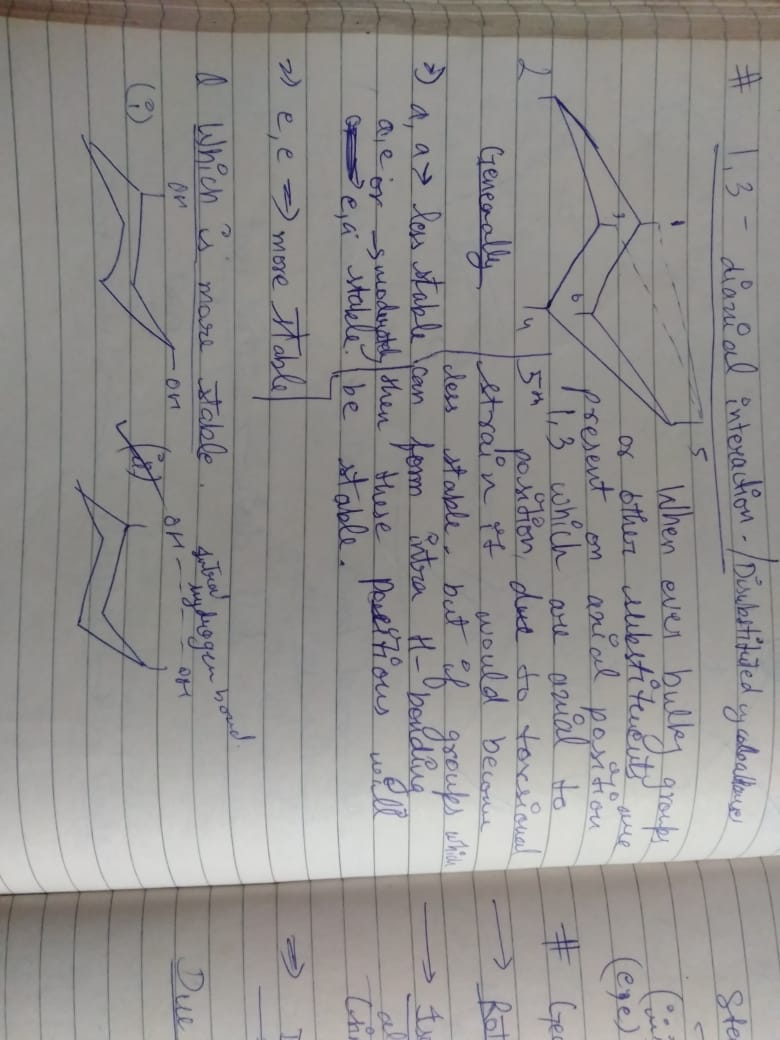 # 1,3 - diaxial interaction - / Disubstituted cycloalkane
1
2
3
4
5
6
When ever bulky groups
or other substituents are
present on axial position
1,3 which are axial to
5th position, due to torsional
strain it would become
less stable. but if groups which
can form intra H-bonding
then these positions will
be stable.
Generally
⇒ a, a → less stable
a, e or → moderately
e, a stable.
⇒ e, e ⇒ more stable
Q Which is more stable.
(i)
OH
OH
(ii)
OH
OH
hydrogen bond.
#
→
→
⇒
Due